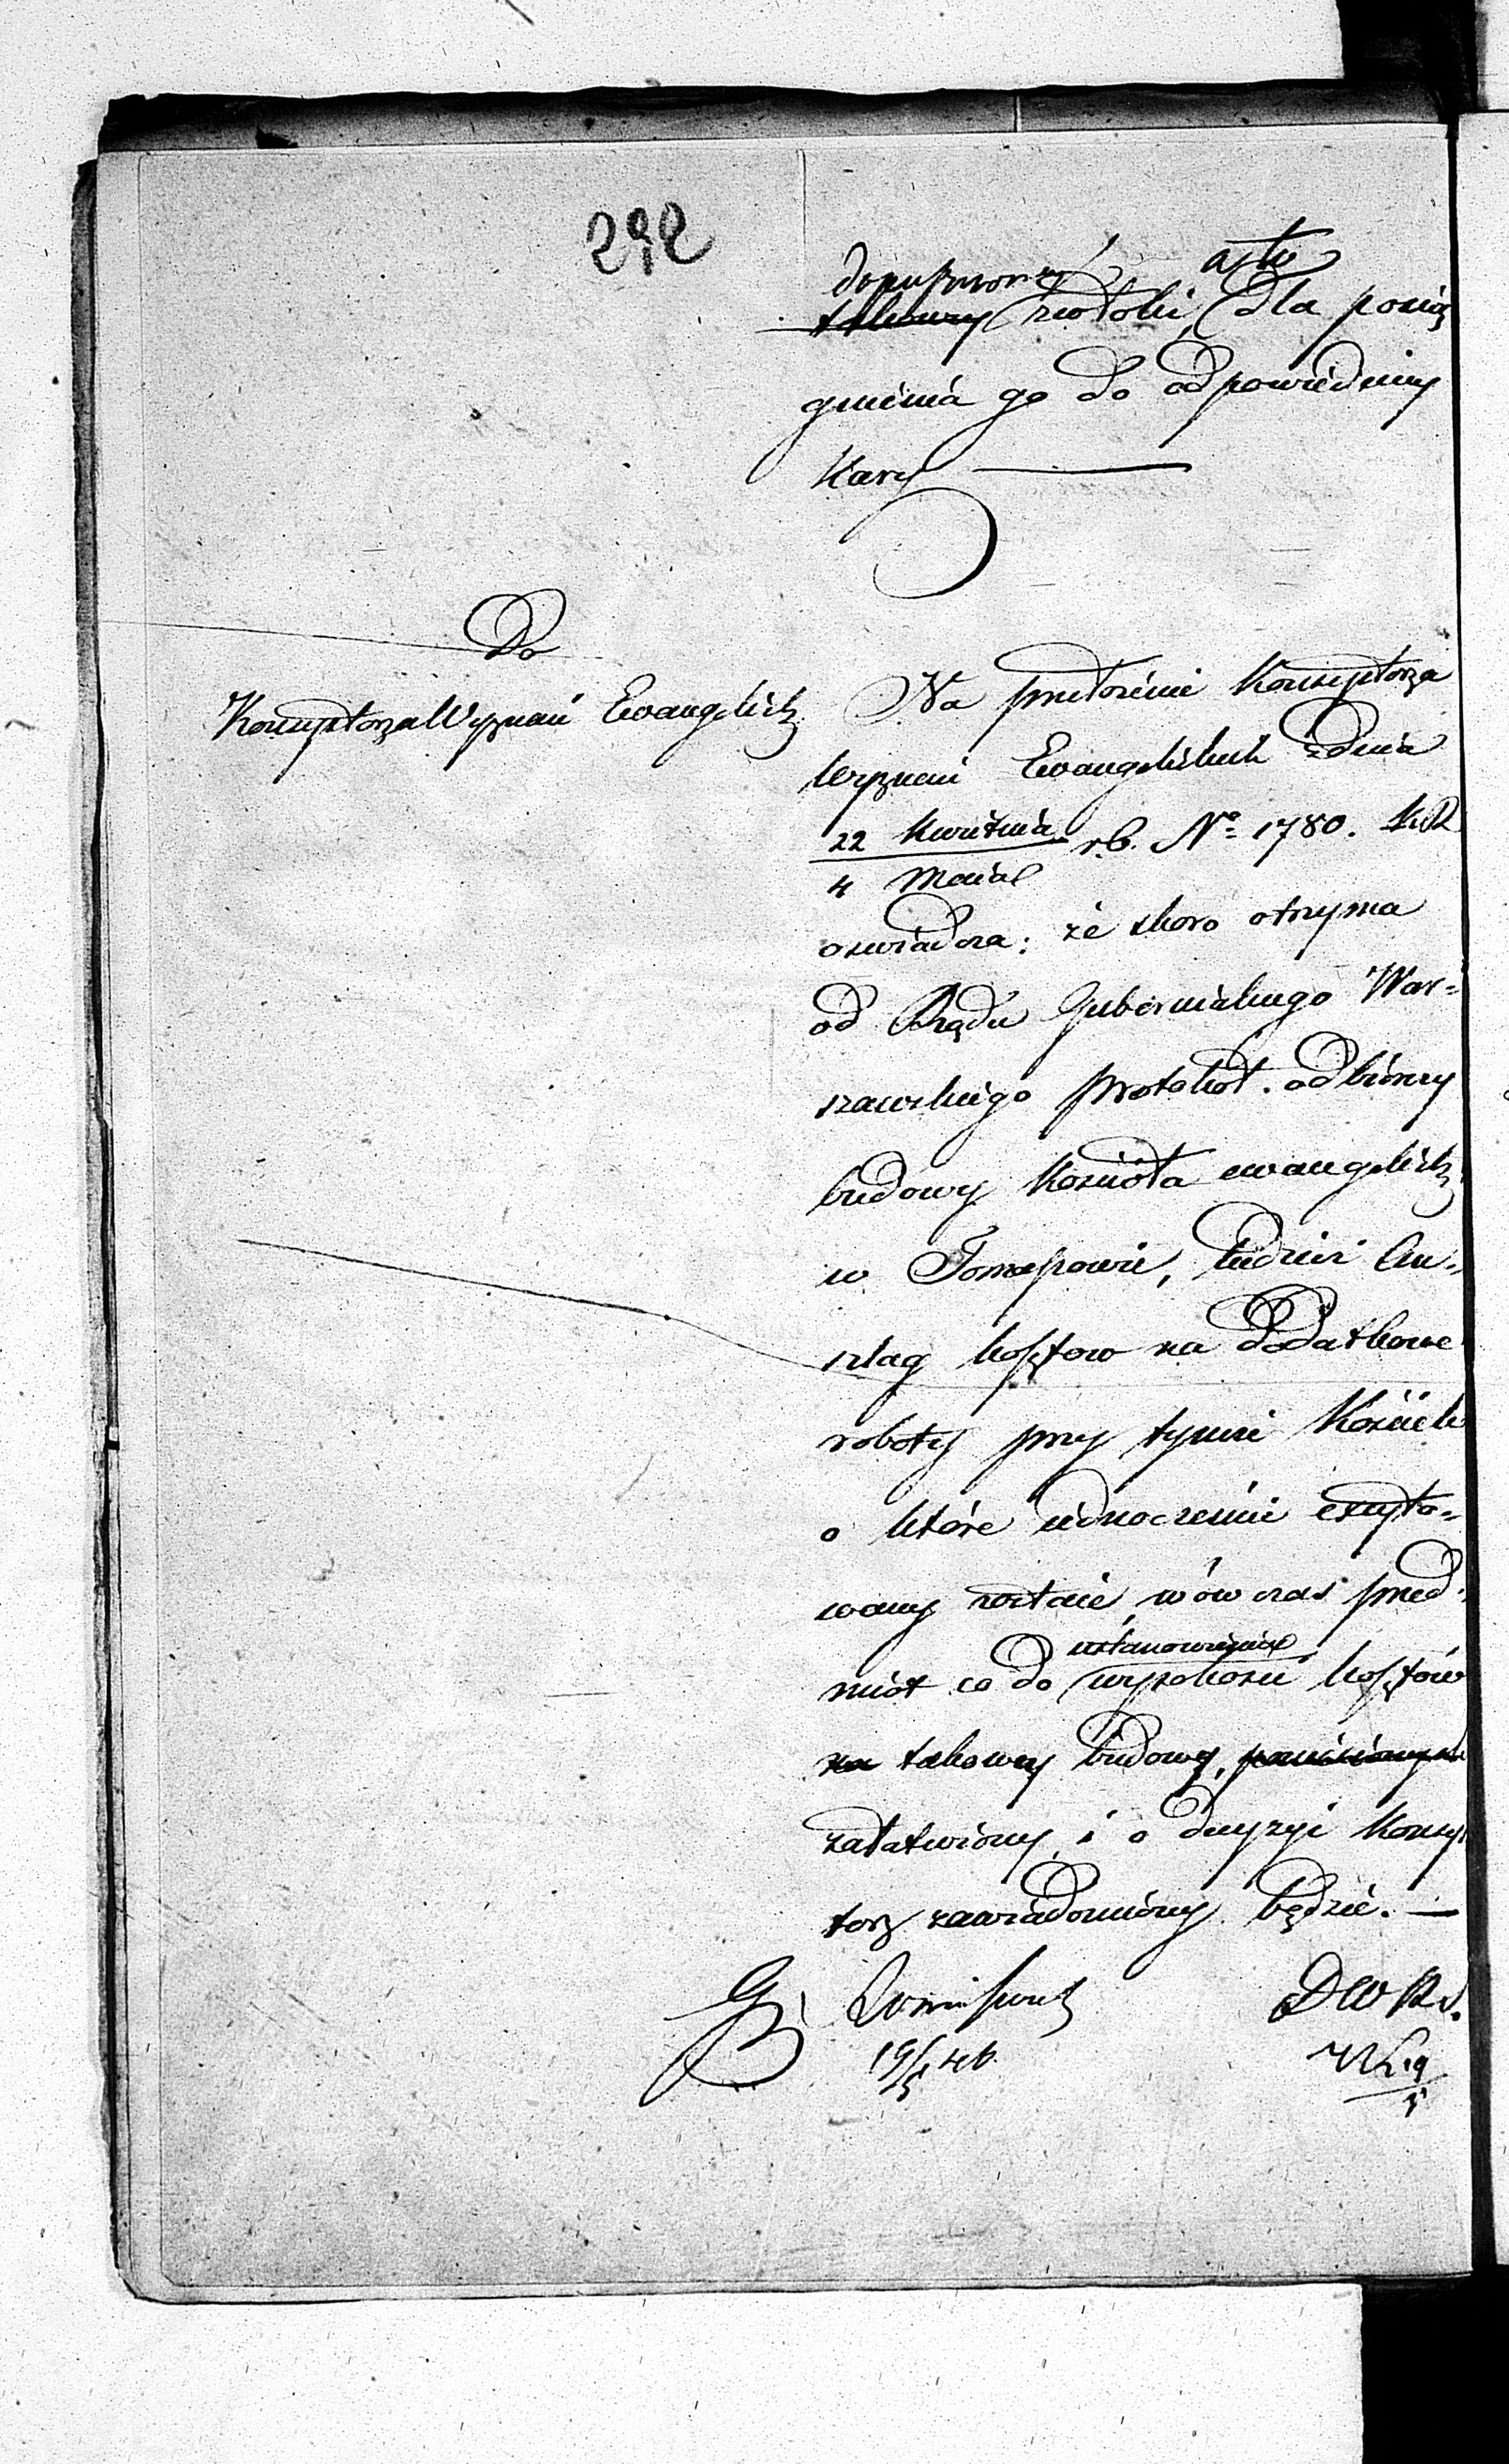 292
dopuszczonej a to
takowej zwłoki, dla pocią
gnienia go do odpowiedniey
Kary
Do
Konsystorza Wyznań Ewangelick
Na przełożenie Konsystorza
Wyznań Ewangelickich z dnia
22 Kwietnia
4 Maia r.b. No 1780. K.R
oswiadcza: że skoro otrzyma
od Rządu Gubernialnego War=
szawskiego protokół odbiorczy
budowy Kościoła ewangelick
w Tomaszowie, tudzież An=
szlag kosztow na dodatkowe
roboty przy tymże Kościele
o które iednocześnie excyto=
wany zostaie, wówczas przed=
miot co do ustanowienia wysokości kosztów
na takowey budowy, poniesionych
załatwiony, i o decyzyi Konsys
torz zawiadomiony będzie. —
DWRS.
19/5 46.
19
5